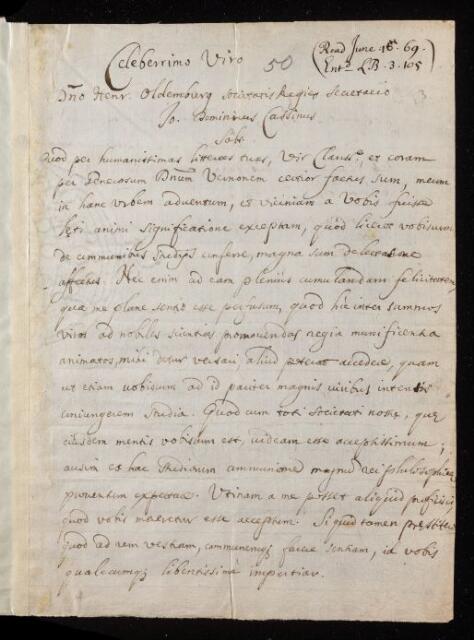 Celeberrimo Viro 50 (Read June 16. 69.
Ent.^d L.B. 3. 105
Dño Henr. Oldemburg Societatis Regiæ Secretario 3
Jo. Dominicus Cassinus
Quod per humanissimas litteras tuas, Vir Clariss.^e, et coram
per Generosum Dnum Vernonem certior factus sum, meum
in hanc urbem adventum, et viciniam a Vobis fuisse
læti animi significatione exceptam, quòd liceat vobiscum
de communibus studijs conferre, magna sum delectatione
affectus. Nec enim ad eam plenius cumulandam felicitatem,
qua me plane sentio esse perfusum, quod hic inter summos
viros ad nobiles scientias promovendas regia munificentia
animatos, mihi detur versari, aliud poterat accedere, quam
ut etiam vobiscum ad id pariter magnis viribus intentis
coniungerem studia. Quod cum toti Societati nostræ, quæ
eiusdem mentis vobiscum est, videam esse acceptissimum;
ausim ex hac studiorum communione magnum rei philosophicæ
proventum expectare. Utinam a me posset aliquid proficisci,
quod vobis mereretur esse acceptum. Si quid tamen
quod ad rem vestram, communemq; facere sentiam, id vobis
qualecumq; libentissimè impertiar.